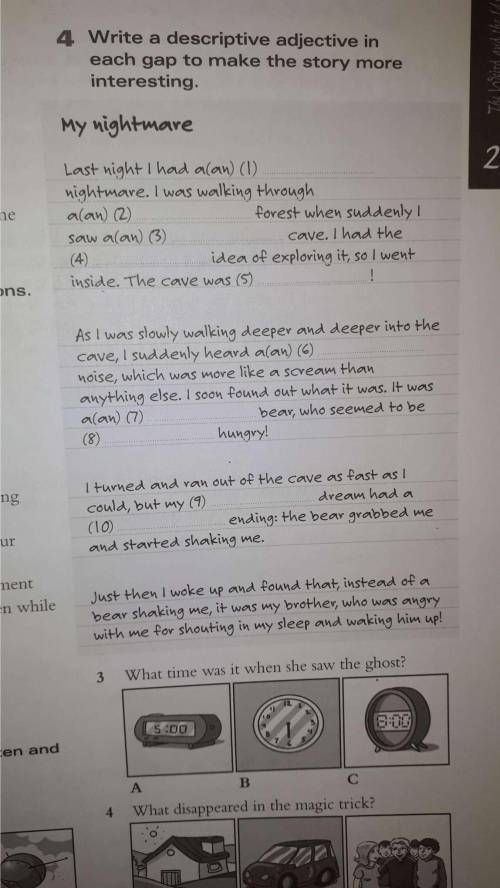 4 Write a descriptive adjective in
each gap to make the story more
interesting.
My nightmare
Last night I had a(an) (1)
nightmare. I was walking through
a(an) (2) forest when suddenly I
saw a(an) (3) cave. I had the
(4) idea of exploring it, so I went
inside. The cave was (5) !
As I was slowly walking deeper and deeper into the
cave, I suddenly heard a(an) (6)
noise, which was more like a scream than
anything else. I soon found out what it was. It was
a(an) (7) bear, who seemed to be
(8) hungry!
I turned and ran out of the cave as fast as I
could, but my (9) dream had a
(10) ending: the bear grabbed me
and started shaking me.
Just then I woke up and found that, instead of a
bear shaking me, it was my brother, who was angry
with me for shouting in my sleep and waking him up!
3 What time was it when she saw the ghost?
5:00
A B C
4 What disappeared in the magic trick?
2
ons.
ng
ur
ment
en while
ten and